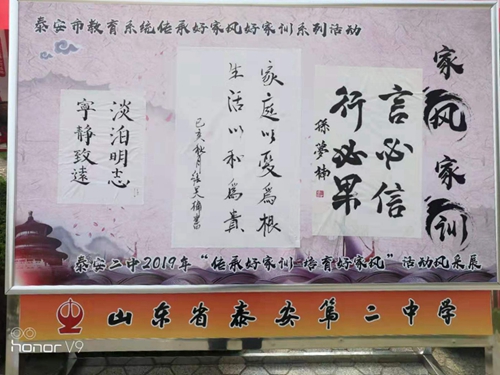 泰安市教育系统传承好家风好家训系列活动
家风家训
言必信
行必果
家庭以愛為根
生活以和為貴
己亥秋月
淡泊明志
寧静致遠
泰安二中2019年“传承好家训-培育好家风”活动风采展
山东省泰安第二中学
honor V9